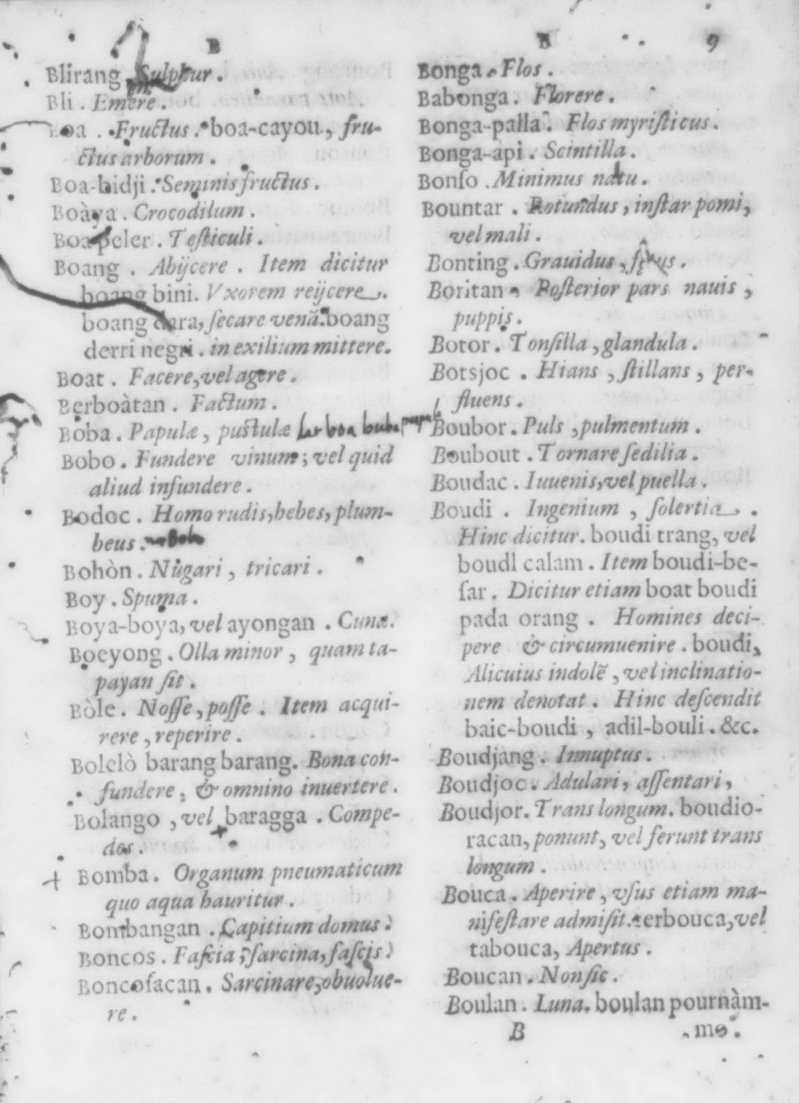 B
Blirang . Sulphur .
Bli . Emere .
Boa . Fructus . boa-cayou, fru-
ctus arborum .
Boa-bidji . Seminis fructus .
Boàya . Crocodilum .
Boapeler . Testiculi .
Boang . Abijcere . Item dicitur
boang bini. Vxorem reijcere .
boang dara, secare venã. boang
derri negri . in exilium mittere.
Boat . Facere, vel agere .
Berboàtan . Factum .
Boba . Papulæ, pustulæ
Bobo . Fundere vinum ; vel quid
aliud infundere .
Bodoc . Homo rudis, hebes, plum-
beus .
Bohòn . Nugari , tricari .
Boy . Spuma .
Boya-boya, vel ayongan . Cunæ.
Boeyong . Olla minor , quam ta-
payan sit .
Bòle . Nosse, posse . Item acqui-
rere , reperire .
Bolelò barang barang. Bona con-
fundere , & omnino inuertere .
Bolango , vel baragga . Compe-
dos .
Bomba . Organum pneumaticum
quo aqua hauritur .
Bombangan . Capitium domus .
Boncos . Fascia , sarcina, fascis .
Boncosacan . Sarcinare, obuolue-
re .
B 9
Bonga . Flos .
Babonga . Florere .
Bonga-palla . Flos myristicus .
Bonga-api . Scintilla .
Bonso . Minimus natu .
Bountar . Rotundus , instar pomi,
vel mali .
Bonting . Grauidus ,
Boritan . Posterior pars nauis ,
puppis .
Botor . Tonsilla , glandula .
Botsjoc . Hians , stillans , per-
fluens .
Boubor . Puls , pulmentum .
Boubout . Tornare sedilia .
Boudac . Iuuenis, vel puella .
Boudi . Ingenium , solertia .
Hinc dicitur. boudi trang, vel
boudl calam . Item boudi-be-
sar . Dicitur etiam boat boudi
pada orang . Homines deci-
pere & circumuenire . boudi,
Alicuius indolẽ , vel inclinatio-
nem denotat . Hinc descendit
baic-boudi , adil-bouli . &c.
Boudjang . Innuptus .
Boudjoc . Adulari, assentari,
Boudjor. Trans longum. boudio-
racan, ponunt, vel ferunt trans
longum .
Bouca . Aperire , vsus etiam ma-
nifestare admisit . terbouca, vel
tabouca, Apertus .
Boucan . Non sic .
Boulan . Luna. boulan pournàm-
B .mo .